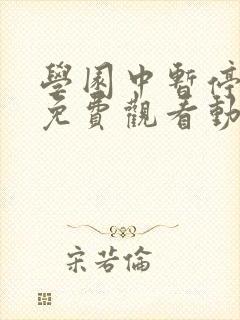 學園中暫停
免費觀看動
宋若倫